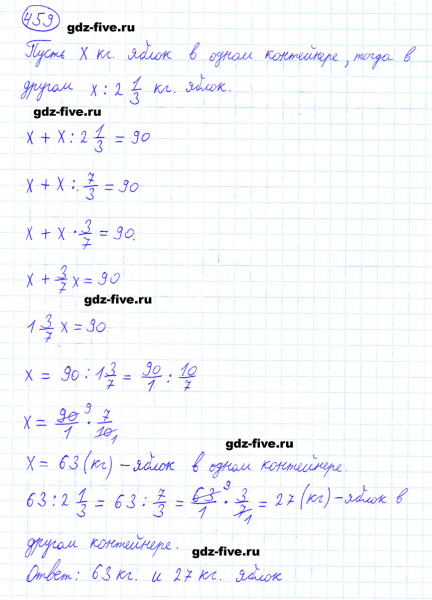 459
gdz-five.ru
Пусть x кг. яблок в одном контейнере, тогда в
другом x : 2 1/3 кг. яблок.
gdz-five.ru
x + x : 2 1/3 = 90
x + x : 7/3 = 90
x + x · 3/7 = 90.
x + 3/7 x = 90
gdz-five.ru
1 3/7 x = 90
x = 90 : 1 3/7 = 90/1 : 10/7
x = 90 9/1 · 7/10 1
gdz-five.ru
x = 63 (кг) – яблок в одном контейнере.
63 : 2 1/3 = 63 : 7/3 = 63 9/1 · 3/7 1 = 27 (кг) – яблок в
другом контейнере.
gdz-five.ru
Ответ: 63 кг. и 27 кг. яблок